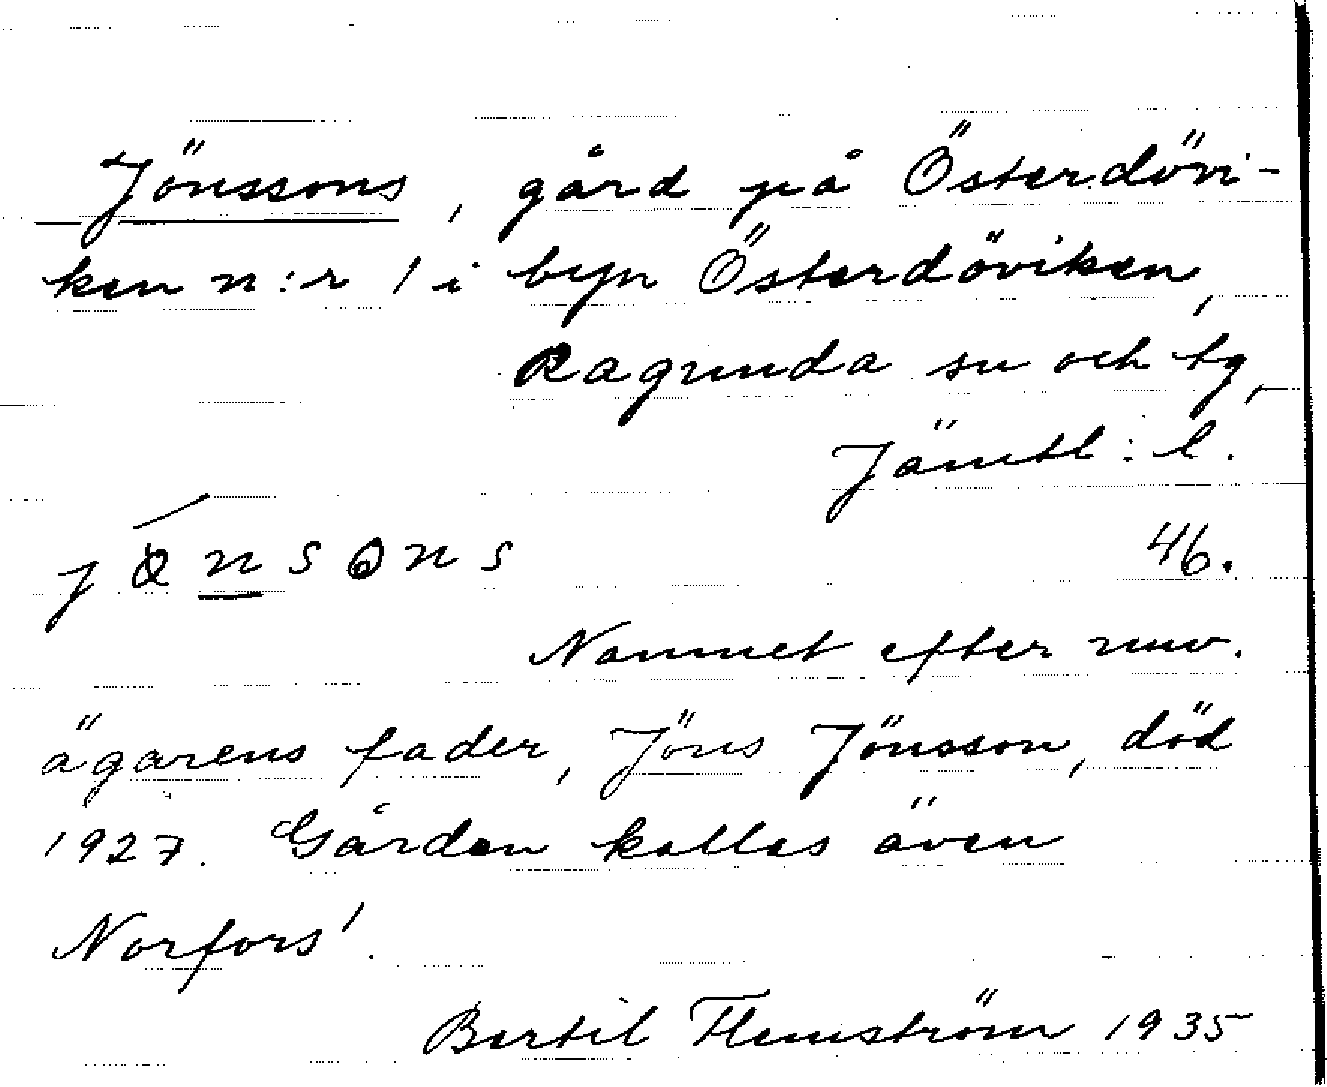 Jönssons, gård på Österdövi-
ken n:r 1 i byn Österdöviken,
Ragunda sn och tg,
Jämtl:l.
jönsons
46.
Namnet efter nuv.
ägarens fader, Jöns Jönsson, död
1927. Gården kallas även
Norfors'.
Bertil Flemström 1935